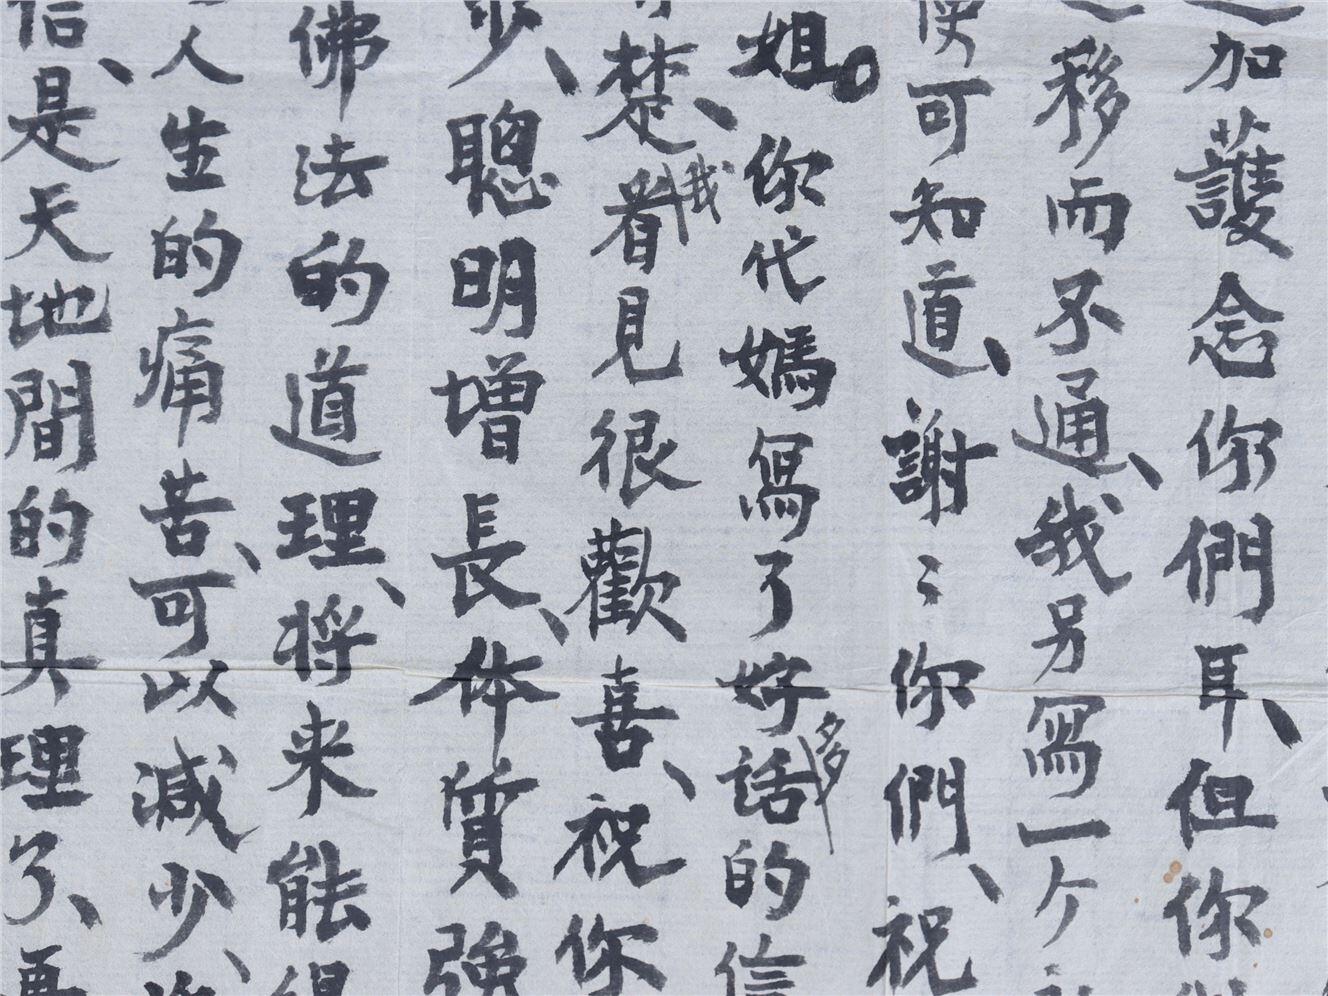 加護念你們耳、但你
移而不通、我另寫一个
可知道、謝〻你們、祝
姐。你代媽寫了好多話的信
楚、我看見很歡喜、祝你
步、聰明增長、体質強
佛法的道理、将来能得
人生的痛苦、可以減少、
信、是天地間的真理了、再